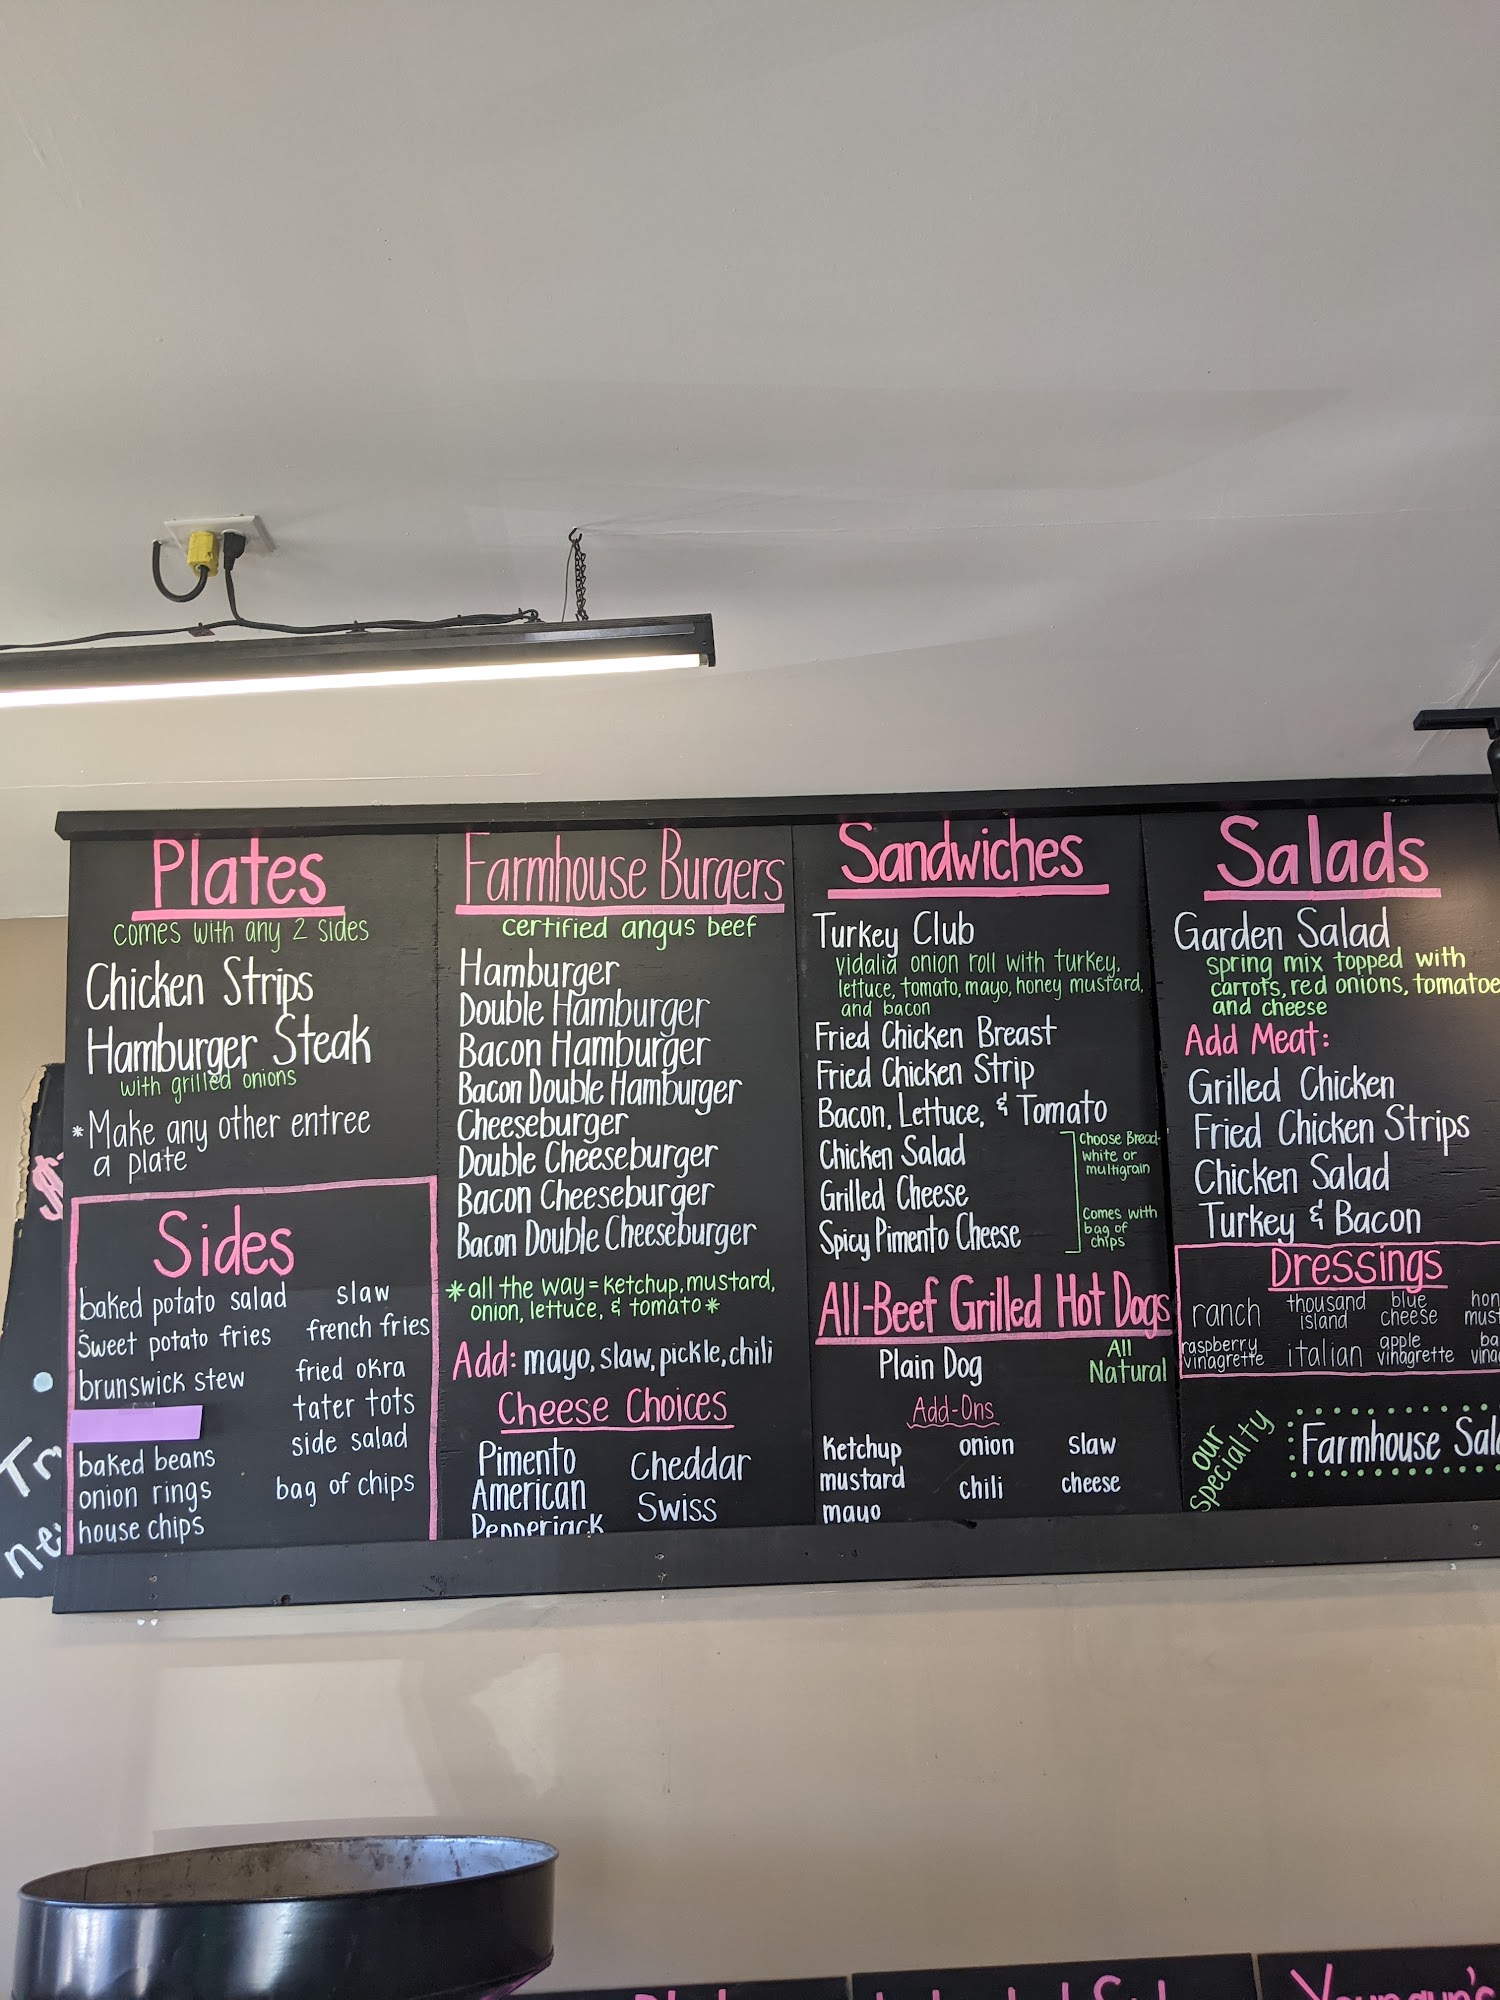 Plates
comes with any 2 sides
Chicken Strips
Hamburger Steak
with grilled onions
*Make any other entree
a plate
Sides
baked potato salad
sweet potato fries
brunswick stew
baked beans
onion rings
house chips
slaw
french fries
fried okra
tater tots
side salad
bag of chips
Farmhouse Burgers
certified angus beef
Hamburger
Double Hamburger
Bacon Hamburger
Bacon Double Hamburger
Cheeseburger
Double Cheeseburger
Bacon Cheeseburger
Bacon Double Cheeseburger
*all the way = ketchup, mustard,
onion, lettuce, & tomato*
Add: mayo, slaw, pickle, chili
Cheese Choices
Pimento
American
Pepperjack
Cheddar
Swiss
Sandwiches
Turkey Club
vidalia onion roll with turkey,
lettuce, tomato, mayo, honey mustard,
and bacon
Fried Chicken Breast
Fried Chicken Strip
Bacon, Lettuce, & Tomato
Chicken Salad
Grilled Cheese
Spicy Pimento Cheese
Choose Bread-
white or
multigrain
Comes with
bag of
chips
All-Beef Grilled Hot Dogs
Plain Dog
All
Natural
Add-Ons
ketchup onion slaw
mustard chili cheese
mayo
Salads
Garden Salad
spring mix topped with
carrots, red onions, tomatoe
and cheese
Add Meat:
Grilled Chicken
Fried Chicken Strips
Chicken Salad
Turkey & Bacon
Dressings
ranch
thousand
island
blue
cheese
hon
must
raspberry
vinagrette
italian
apple
vinagrette
ba
vina
our
specialty
Farmhouse Sal